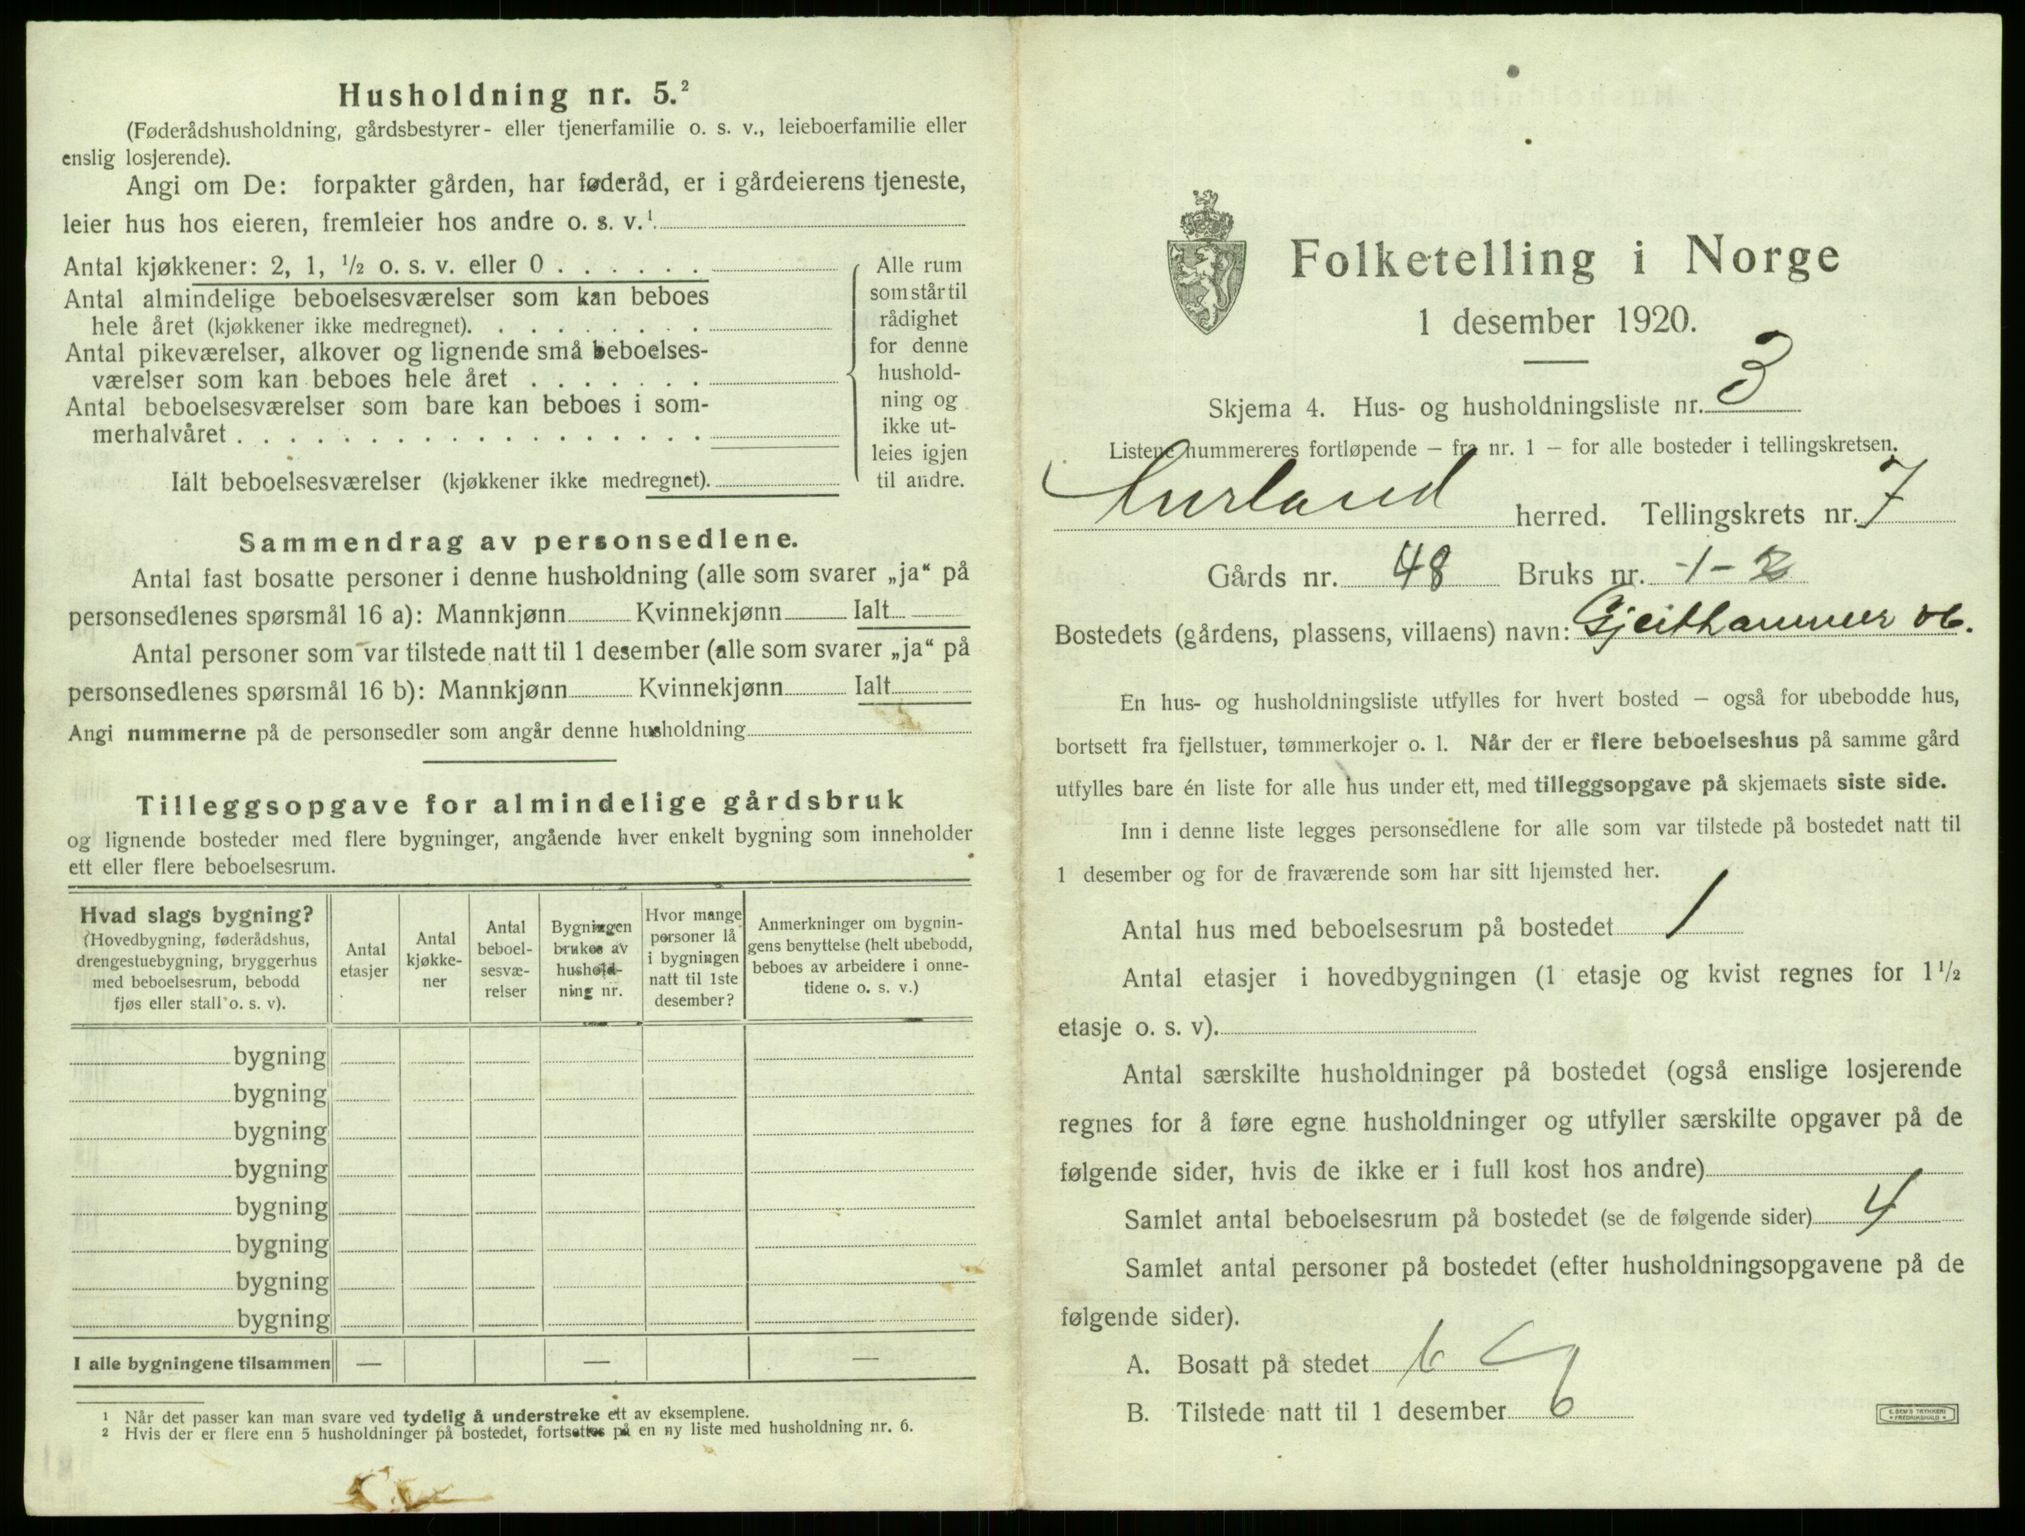 Husholdning nr. 5.²
(Føderådshusholdning, gårdsbestyrer- eller tjenerfamilie o. s. v., leieboerfamilie eller
enslig losjerende).
Angi om De: forpakter gården, har føderåd, er i gårdeierens tjeneste,
leier hus hos eieren, fremleier hos andre o. s. v.¹
Antal kjøkkener: 2, 1, ½ o. s. v. eller 0 . . . . . .
Antal almindelige beboelsesværelser som kan beboes
hele året (kjøkkener ikke medregnet). . . . . . . . .
Antal pikeværelser, alkover og lignende små beboelses-
værelser som kan beboes hele året . . . . . . .
Antal beboelsesværelser som bare kan beboes i som-
merhalvåret . . . . . . . . . . . . . . . . . .
Ialt beboelsesværelser (kjøkkener ikke medregnet).
Alle rum
som står til
rådighet
for denne
hushold-
ning og
ikke ut-
leies igjen
til andre.
Sammendrag av personsedlene.
Antal fast bosatte personer i denne husholdning (alle som svarer „ja“ på
personsedlenes spørsmål 16 a): Mannkjønn Kvinnekjønn Ialt
Antal personer som var tilstede natt til 1 desember (alle som svarer „ja“ på
personsedlenes spørsmål 16 b): Mannkjønn Kvinnekjønn Ialt
Angi nummerne på de personsedler som angår denne husholdning
Tilleggsopgave for almindelige gårdsbruk
og lignende bosteder med flere bygninger, angående hver enkelt bygning som inneholder
ett eller flere beboelsesrum.
Hvad slags bygning?
(Hovedbygning, føderådshus,
drengestuebygning, bryggerhus
med beboelsesrum, bebodd
fjøs eller stall o. s. v).
Antal
etasjer
Antal
kjøkke-
ner
Antal
beboel-
sesvæ-
relser
Bygningen
brukes av
hushold-
ning nr.
Hvor mange
personer lå
i bygningen
natt til 1ste
desember?
Anmerkninger om bygnin-
gens benyttelse (helt ubebodd,
beboes av arbeidere i onne-
tidene o. s. v.)
bygning
bygning
bygning
bygning
bygning
bygning
bygning
bygning
I alle bygningene tilsammen — — —
¹ Når det passer kan man svare ved tydelig å understreke ett av eksemplene.
² Hvis der er flere enn 5 husholdninger på bostedet, fortsettes på en ny liste med husholdning nr. 6.
Folketelling i Norge
1 desember 1920.
Skjema 4. Hus- og husholdningsliste nr. 3
Listene nummereres fortløpende – fra nr. 1 – for alle bosteder i tellingskretsen.
Aurland herred. Tellingskrets nr. 7
Gårds nr. 48 Bruks nr. 1-2
Bostedets (gårdens, plassens, villaens) navn: Gjeithammer
En hus- og husholdningsliste utfylles for hvert bosted – også for ubebodde hus,
bortsett fra fjellstuer, tømmerkojer o. l. Når der er flere beboelseshus på samme gård
utfylles bare én liste for alle hus under ett, med tilleggsopgave på skjemaets siste side.
Inn i denne liste legges personsedlene for alle som var tilstede på bostedet natt til
1 desember og for de fraværende som har sitt hjemsted her.
Antal hus med beboelsesrum på bostedet 1
Antal etasjer i hovedbygningen (1 etasje og kvist regnes for 1½
etasje o. s. v).
Antal særskilte husholdninger på bostedet (også enslige losjerende
regnes for å føre egne husholdninger og utfyller særskilte opgaver på de
følgende sider, hvis de ikke er i full kost hos andre)
Samlet antal beboelsesrum på bostedet (se de følgende sider) 4
Samlet antal personer på bostedet (efter husholdningsopgavene på de
følgende sider).
A. Bosatt på stedet 6
B. Tilstede natt til 1 desember 6
E. SEM'S TRYKKERI
FREDRIKSHALD